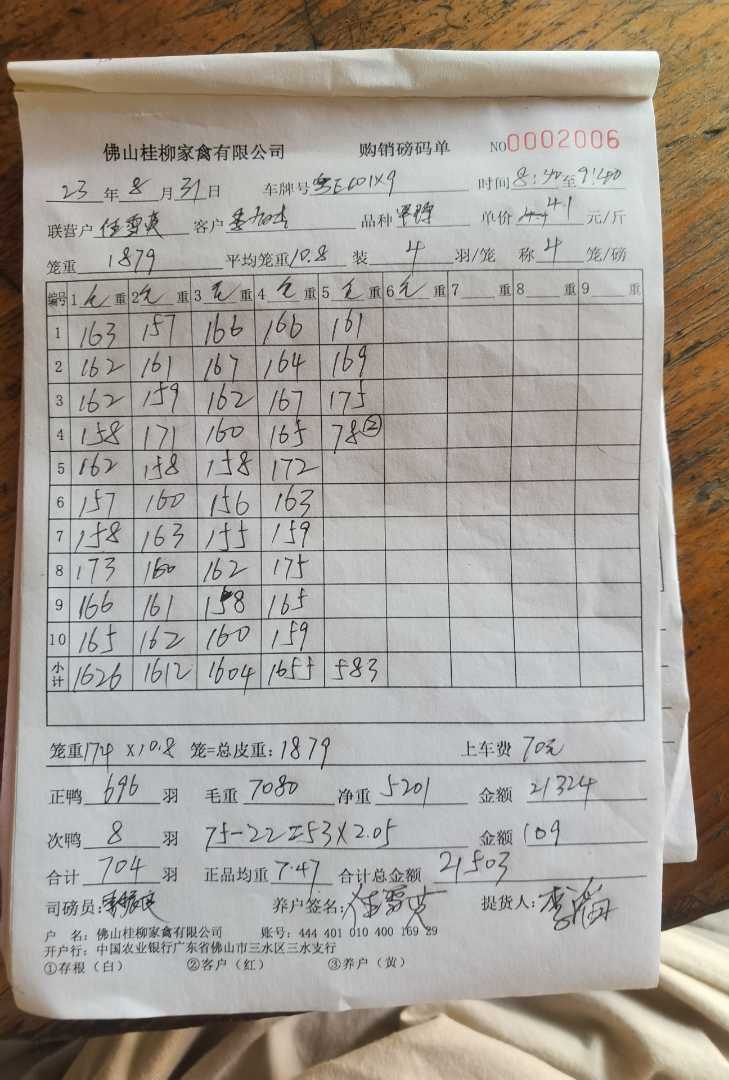 佛山桂柳家禽有限公司 购销磅码单 NO0002006
23 年 8 月 31 日 车牌号 E601X9 时间 8:40 至 9:40
联营户 客户 品种 单价 4.1 元/斤
笼重 1879 平均笼重 10.8 装 4 羽/笼 称 4 笼/磅
编号 1 毛 重 2 毛 重 3 毛 重 4 毛 重 5 毛 重 6 毛 重 7 重 8 重 9 重
1 163 157 166 166 161
2 162 161 167 164 169
3 162 159 162 167 175
4 158 171 160 165 78②
5 162 158 158 172
6 157 160 156 163
7 158 163 155 159
8 173 160 162 175
9 166 161 158 165
10 165 162 160 159
小计 1626 1612 1604 1655 583
笼重 174 X10.8 笼=总皮重: 1879 上车费 70元
正鸭 696 羽 毛重 7080 净重 5201 金额 21324
次鸭 8 羽 75-22=53X2.05 金额 109
合计 704 羽 正品均重 7.47 合计总金额 21503
司磅员: 养户签名: 提货人:
户 名: 佛山桂柳家禽有限公司 账号: 444 401 010 400 169 29
开户行: 中国农业银行广东省佛山市三水区三水支行
①存根(白) ②客户(红) ③养户(黄)